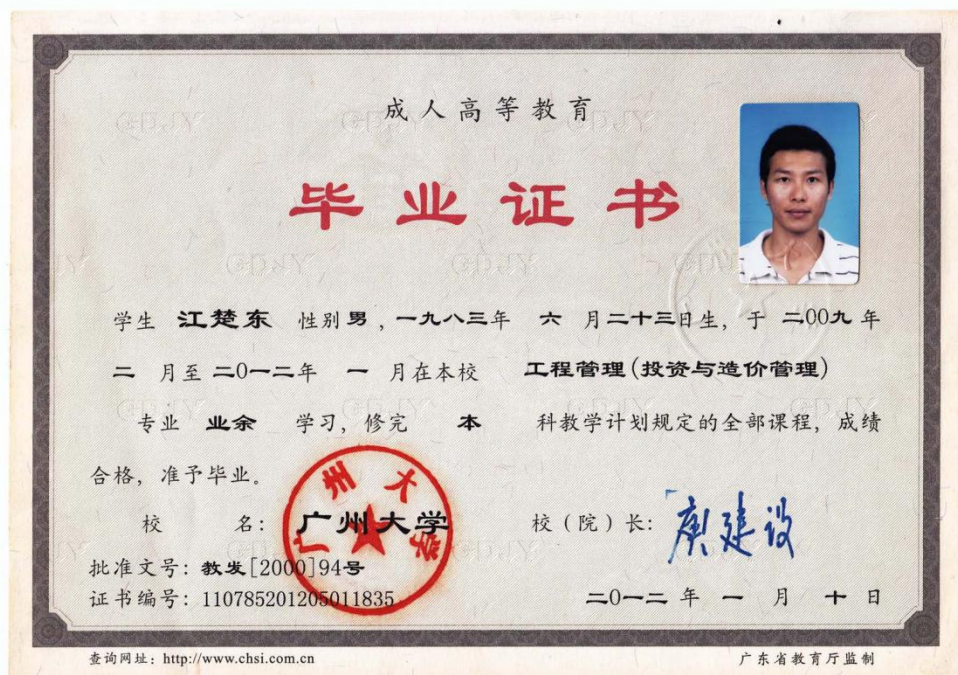 成人高等教育
毕业证书
学生 江楚东 性别 男 , 一九八三年 六 月二十三日生, 于 二00九 年
二 月至 二0一二年 一 月在本校 工程管理(投资与造价管理)
专业 业余 学习, 修完 本 科教学计划规定的全部课程, 成绩
合格, 准予毕业。
校 名: 广州大学 校(院)长: 庾建设
广州大学
批准文号: 教发[2000]94号
证书编号: 110785201205011835 二0一二 年 一 月 十 日
查询网址: http://www.chsi.com.cn 广东省教育厅监制
GDJY